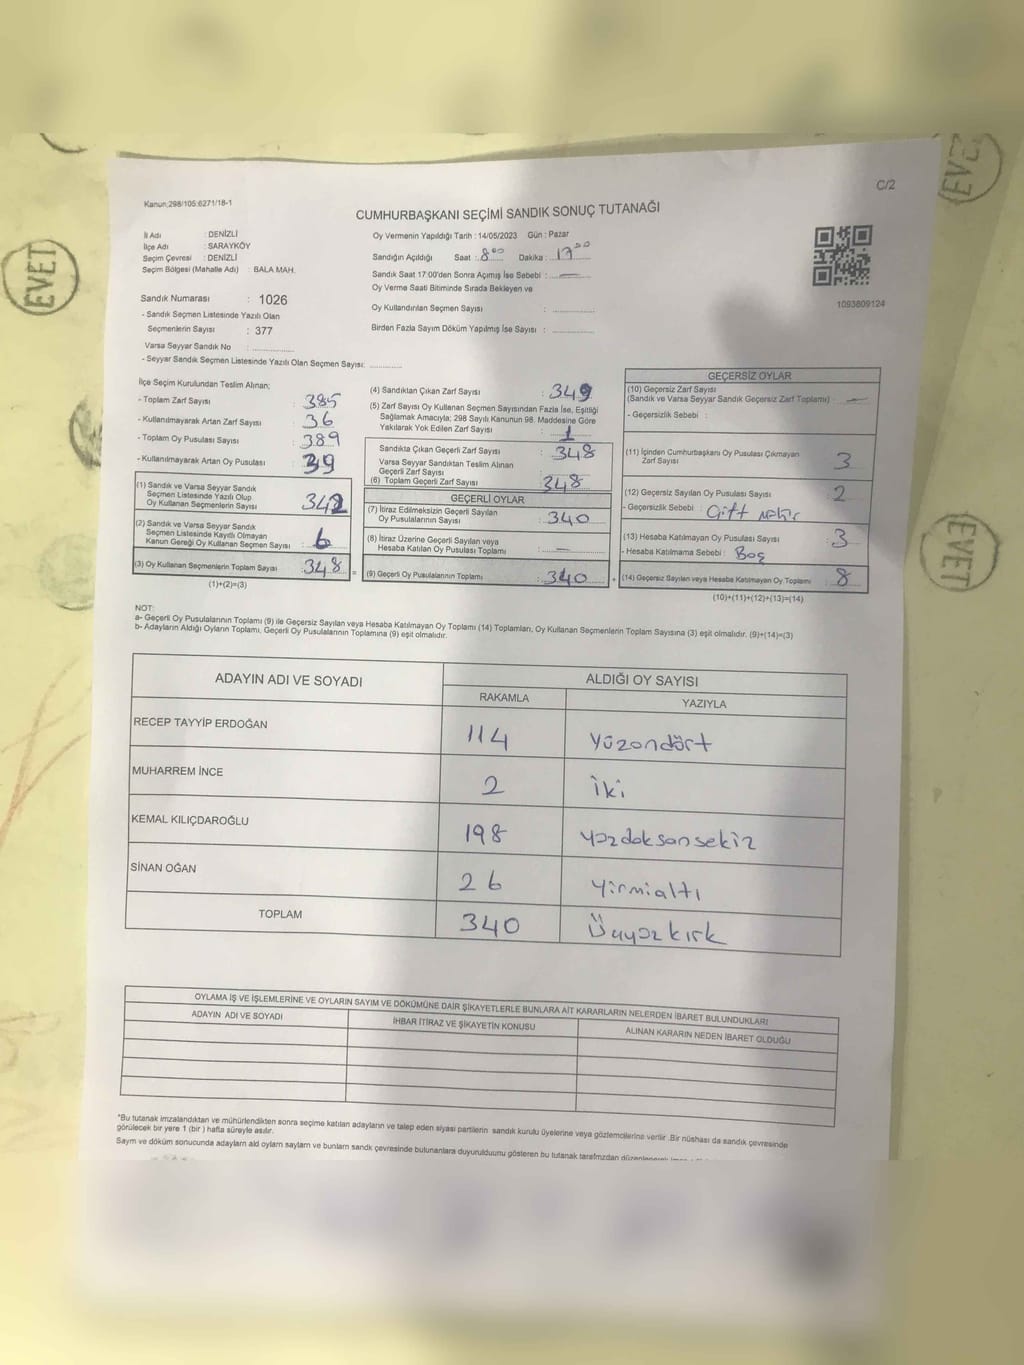 C/2
Kanun:298/105:6271/18-1
CUMHURBAŞKANI SEÇİMİ SANDIK SONUÇ TUTANAĞI
İl Adı : DENİZLİ
İlçe Adı : SARAYKÖY
Seçim Çevresi : DENİZLİ
Seçim Bölgesi (Mahalle Adı) : BALA MAH.
Oy Vermenin Yapıldığı Tarih : 14/05/2023 Gün : Pazar
Sandığın Açıldığı Saat : 8⁰⁰ Dakika : 17⁰⁰
Sandık Saat 17:00'den Sonra Açımış İse Sebebi : —
Oy Verme Saati Bitiminde Sırada Bekleyen ve
Oy Kullandırılan Seçmen Sayısı :
Birden Fazla Sayım Döküm Yapılmış İse Sayısı :
1093809124
Sandık Numarası : 1026
- Sandık Seçmen Listesinde Yazılı Olan
Seçmenlerin Sayısı : 377
Varsa Seyyar Sandık No :
- Seyyar Sandık Seçmen Listesinde Yazılı Olan Seçmen Sayısı:
İlçe Seçim Kurulundan Teslim Alınan;
- Toplam Zarf Sayısı : 385
- Kullanılmayarak Artan Zarf Sayısı : 36
- Toplam Oy Pusulası Sayısı : 389
- Kullanılmayarak Artan Oy Pusulası : 39
(1) Sandık ve Varsa Seyyar Sandık
Seçmen Listesinde Yazılı Olup
Oy Kullanan Seçmenlerin Sayısı : 342
(2) Sandık ve Varsa Seyyar Sandık
Seçmen Listesinde Kayıtlı Olmayan
Kanun Gereği Oy Kullanan Seçmen Sayısı : 6
(3) Oy Kullanan Seçmenlerin Toplam Sayısı : 348 =
(1)+(2)=(3)
(4) Sandıktan Çıkan Zarf Sayısı : 349
(5) Zarf Sayısı Oy Kullanan Seçmen Sayısından Fazla İse, Eşitliği
Sağlamak Amacıyla; 298 Sayılı Kanunun 98. Maddesine Göre
Yakılarak Yok Edilen Zarf Sayısı : 1
Sandıkta Çıkan Geçerli Zarf Sayısı : 348
Varsa Seyyar Sandıktan Teslim Alınan
Geçerli Zarf Sayısı
(6) Toplam Geçerli Zarf Sayısı : 348
GEÇERLİ OYLAR
(7) İtiraz Edilmeksizin Geçerli Sayılan
Oy Pusulalarının Sayısı : 340
(8) İtiraz Üzerine Geçerli Sayılan veya
Hesaba Katılan Oy Pusulası Toplamı : —
(9) Geçerli Oy Pusulalarının Toplamı : 340 +
GEÇERSİZ OYLAR
(10) Geçersiz Zarf Sayısı
(Sandık ve Varsa Seyyar Sandık Geçersiz Zarf Toplamı) : —
- Geçersizlik Sebebi :
(11) İçinden Cumhurbaşkanı Oy Pusulası Çıkmayan
Zarf Sayısı : 3
(12) Geçersiz Sayılan Oy Pusulası Sayısı : 2
- Geçersizlik Sebebi : Çift mühür
(13) Hesaba Katılmayan Oy Pusulası Sayısı : 3
- Hesaba Katılmama Sebebi : Boş
(14) Geçersiz Sayılan veya Hesaba Katılmayan Oy Toplamı : 8
(10)+(11)+(12)+(13)=(14)
NOT:
a- Geçerli Oy Pusulalarının Toplamı (9) ile Geçersiz Sayılan veya Hesaba Katılmayan Oy Toplamı (14) Toplamları, Oy Kullanan Seçmenlerin Toplam Sayısına (3) eşit olmalıdır. (9)+(14)=(3)
b- Adayların Aldığı Oyların Toplamı, Geçerli Oy Pusulalarının Toplamına (9) eşit olmalıdır.
ADAYIN ADI VE SOYADI ALDIĞI OY SAYISI
RAKAMLA YAZIYLA
RECEP TAYYİP ERDOĞAN 114 Yüzondört
MUHARREM İNCE 2 İki
KEMAL KILIÇDAROĞLU 198 Yüzdoksansekiz
SİNAN OĞAN 26 Yirmialtı
TOPLAM 340 Üçyüzkırk
OYLAMA İŞ VE İŞLEMLERİNE VE OYLARIN SAYIM VE DÖKÜMÜNE DAİR ŞİKAYETLERLE BUNLARA AİT KARARLARIN NELERDEN İBARET BULUNDUKLARI
ADAYIN ADI VE SOYADI İHBAR İTİRAZ VE ŞİKAYETİN KONUSU ALINAN KARARIN NEDEN İBARET OLDUĞU
*Bu tutanak imzalandıktan ve mühürlendikten sonra seçime katılan adayların ve talep eden siyasi partilerin sandık kurulu üyelerine veya gözlemcilerine verilir .Bir nüshası da sandık çevresinde
görülecek bir yere 1 (bir ) hafta süreyle asılır.
Sayım ve döküm sonucunda adayların ald oyların sayıların ve bunların sandk çevresinde bulunanlara duyurulduunu gösteren bu tutanak tarafmzdan
EVET
EVET
EVET